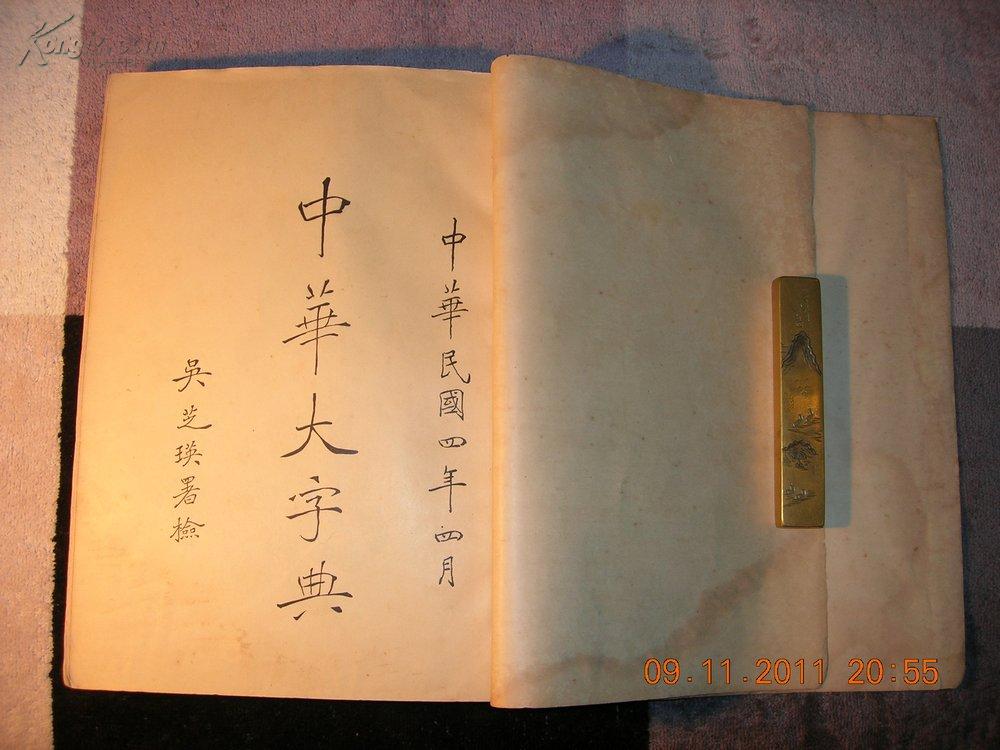 中華民國四年四月
中華大字典
吳芝瑛署檢
09.11.2011 20:55